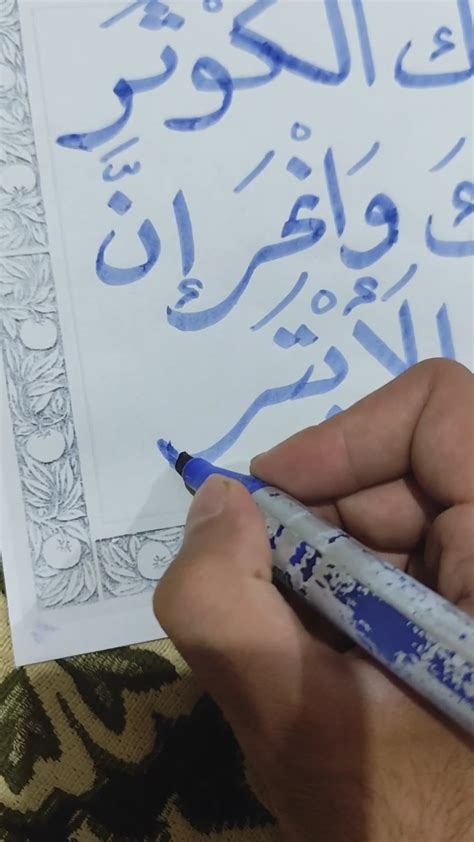 ك الكَوْثَرَ
كَ وَانْحَرْ إِنَّ
الأَبْتَر